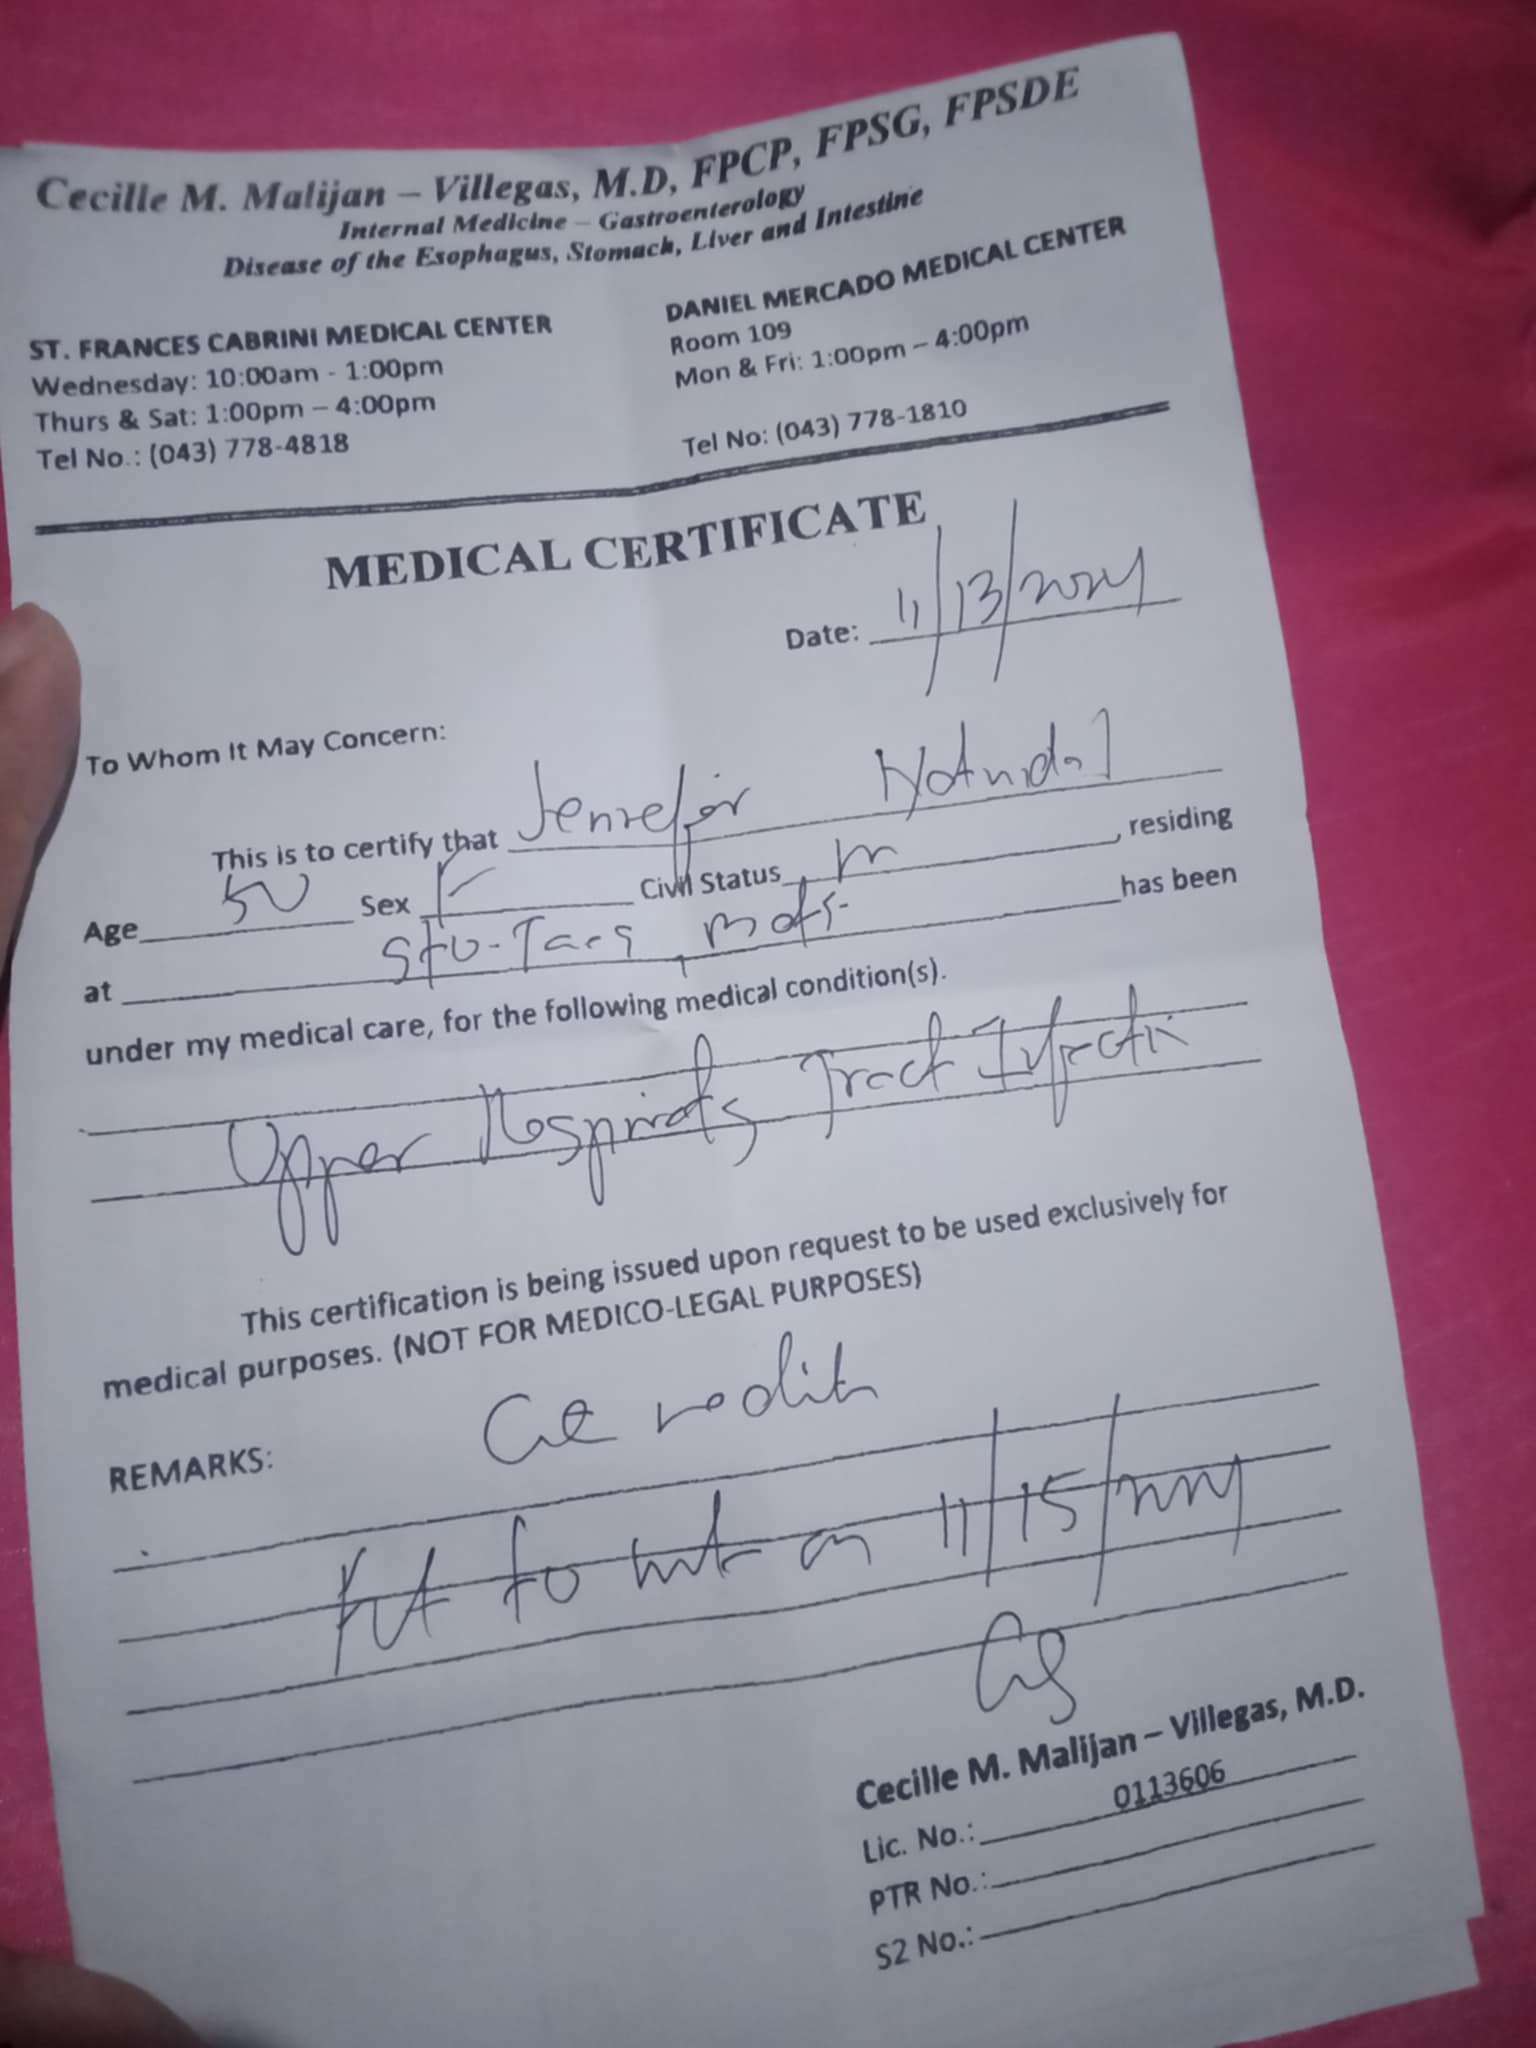 Cecille M. Malijan – Villegas, M.D, FPCP, FPSG, FPSDE
Internal Medicine – Gastroenterology
Disease of the Esophagus, Stomach, Liver and Intestine
ST. FRANCES CABRINI MEDICAL CENTER
Wednesday: 10:00am - 1:00pm
Thurs & Sat: 1:00pm – 4:00pm
Tel No.: (043) 778-4818
DANIEL MERCADO MEDICAL CENTER
Room 109
Mon & Fri: 1:00pm – 4:00pm
Tel No: (043) 778-1810
MEDICAL CERTIFICATE
Date: 11/13/2024
To Whom It May Concern:
This is to certify that Jennefer
Age 50 Sex F Civil Status m, residing
at Sto. Tas, Bats. has been
under my medical care, for the following medical condition(s).
Upper Respiratory Tract Infection
This certification is being issued upon request to be used exclusively for
medical purposes. (NOT FOR MEDICO-LEGAL PURPOSES)
REMARKS:
Fit to work on 11/15/2024
Cecille M. Malijan – Villegas, M.D.
Lic. No.: 0113606
PTR No.:
S2 No.: